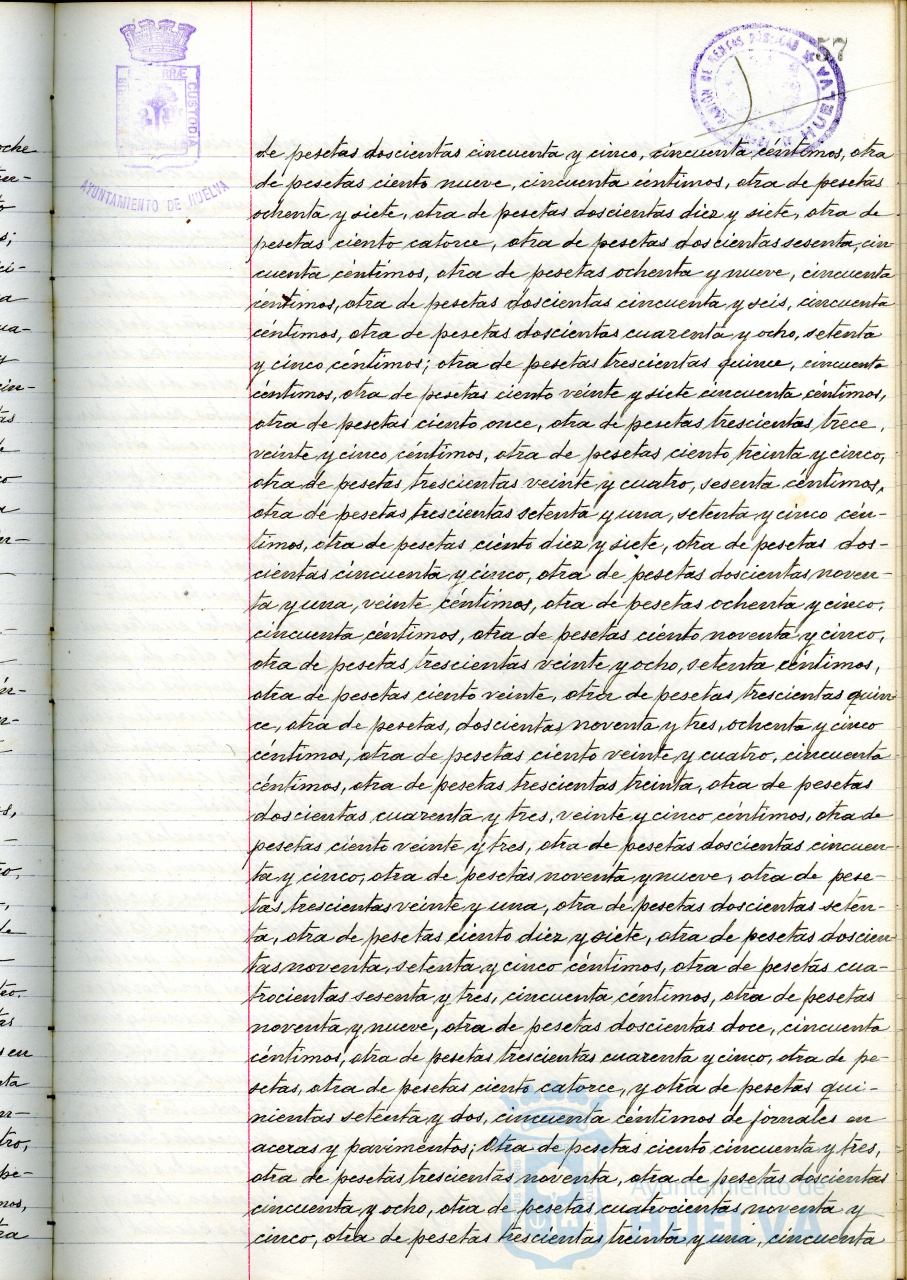 57
AYUNTAMIENTO DE HUELVA
CUSTODIA
HUELVA
de pesetas doscientas cincuenta y cinco, cincuenta céntimos, otra
de pesetas ciento nueve, cincuenta céntimos, otra de pesetas
ochenta y siete, otra de pesetas doscientas diez y siete, otra de
pesetas ciento catorce, otra de pesetas doscientas sesenta, cin
cuenta céntimos, otra de pesetas ochenta y nueve, cincuenta
céntimos, otra de pesetas doscientas cincuenta y seis, cincuenta
céntimos, otra de pesetas doscientas cuarenta y ocho, setenta
y cinco céntimos; otra de pesetas trescientas quince, cincuenta
céntimos, otra de pesetas ciento veinte y siete cincuenta céntimos,
otra de pesetas ciento once, otra de pesetas trescientas trece,
veinte y cinco céntimos, otra de pesetas ciento treinta y cinco,
otra de pesetas trescientas veinte y cuatro, sesenta céntimos,
otra de pesetas trescientas setenta y una, setenta y cinco cén-
timos, otra de pesetas ciento diez y siete, otra de pesetas dos-
cientas cincuenta y cinco, otra de pesetas doscientas noven-
ta y una, veinte céntimos, otra de pesetas ochenta y cinco,
cincuenta céntimos, otra de pesetas ciento noventa y cinco,
otra de pesetas trescientas veinte y ocho, setenta céntimos,
otra de pesetas ciento veinte, otra de pesetas trescientas quin
ce, otra de pesetas, doscientas noventa y tres, ochenta y cinco
céntimos, otra de pesetas ciento veinte y cuatro, cincuenta
céntimos, otra de pesetas trescientas treinta, otra de pesetas
doscientas cuarenta y tres, veinte y cinco céntimos, otra de
pesetas ciento veinte y tres, otra de pesetas doscientas cincuen-
ta y cinco, otra de pesetas noventa y nueve, otra de pese-
tas trescientas veinte y una, otra de pesetas doscientas seten-
ta, otra de pesetas ciento diez y siete, otra de pesetas doscien-
tas noventa, setenta y cinco céntimos, otra de pesetas cua-
trocientas sesenta y tres, cincuenta céntimos, otra de pesetas
noventa y nueve, otra de pesetas doscientas doce, cincuenta
céntimos, otra de pesetas trescientas cuarenta y cinco, otra de pe-
setas, otra de pesetas ciento catorce, y otra de pesetas qui-
nientas setenta y dos, cincuenta céntimos de jornales en
aceras y pavimentos; Otra de pesetas ciento cincuenta y tres,
otra de pesetas trescientas noventa, otra de pesetas doscientas
cincuenta y ocho, otra de pesetas cuatrocientas noventa y
cinco, otra de pesetas trescientas treinta y una, cincuenta
Ayuntamiento de
HUELVA